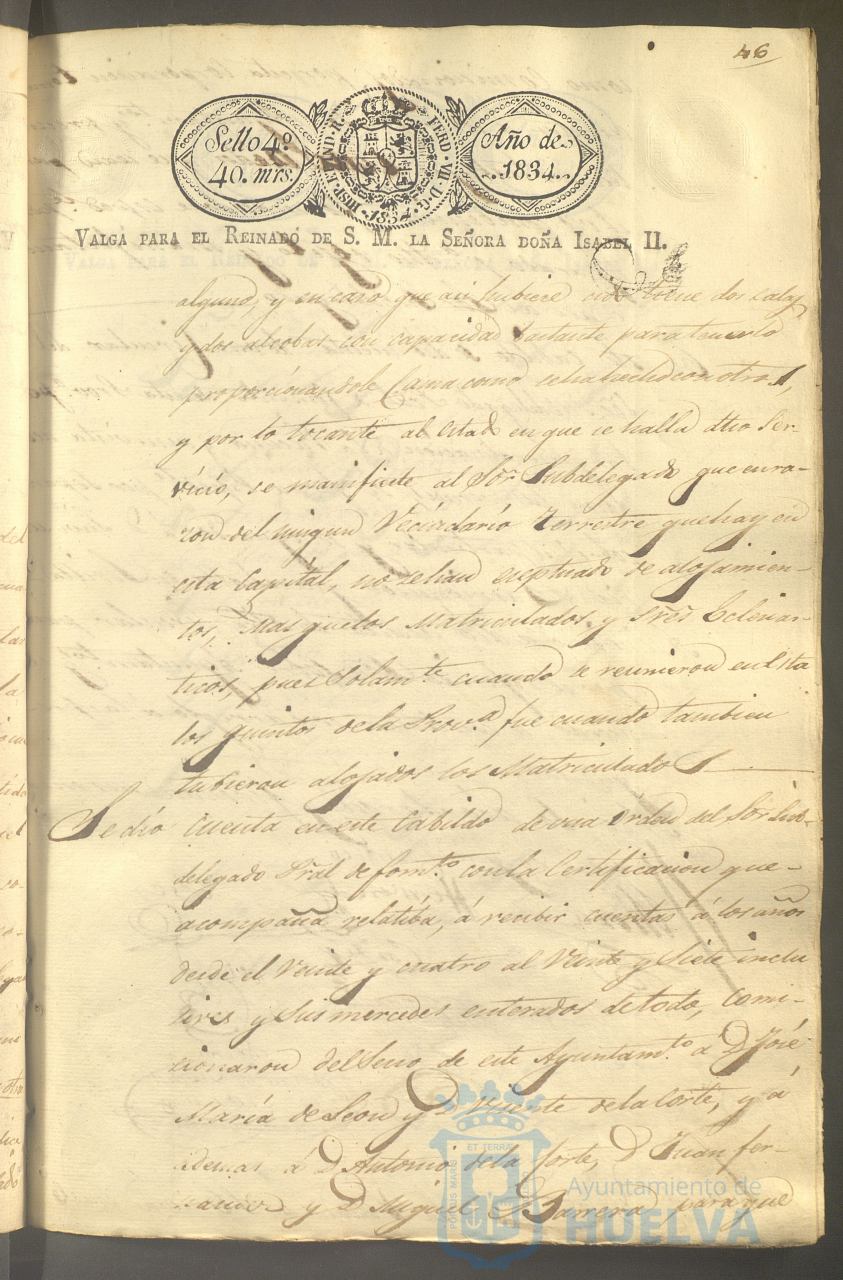 46
Sello 4º
40. mrs.
HISP. ET IND. R. FERD. VII. D. G. 1834.
Año de
1834.
VALGA PARA EL REINADO DE S. M. LA SEÑORA DOÑA ISABEL II.
alguno, y en caso que asi hubiere no tiene dos salas
y dos alcobas con capacidad bastante para tenerlo
proporcionandole Cama como se ha hecho con otros,
y por lo tocante al estado en que se halla dho Ser-
vicio, se manifieste al Sor Subdelegado que en ra-
zon del ningun Vecindario Terrestre que hay en
esta Capitál, no se han exeptuado de alojamien-
tos, mas que los Matriculados y Sres Eclesias-
ticos, pues Solamte cuando se reunieron en Esta
los quintos de la Prova fue cuando tambien
tubieron alojados los Matriculados
Se dio cuenta en este Cabildo de una orden del Sor Sub-
delegado Pral de fomto con la Certificacion que
acompaña relatiba, á recibir cuentas á los años
desde el Veinte y cuatro al Veinte y Siete inclu
sives y Sus mercedes enterados de todo, Comi-
cionaron del Seno de este Ayuntamto á D José
María de Leon y D Vicente de la Corte, y á
demas á D Antonio de la Corte, D Juan fer-
nandez y D Miguel Barrera, para que
ET TERRÆ
PORTUS MARIS
Ayuntamiento de
HUELVA